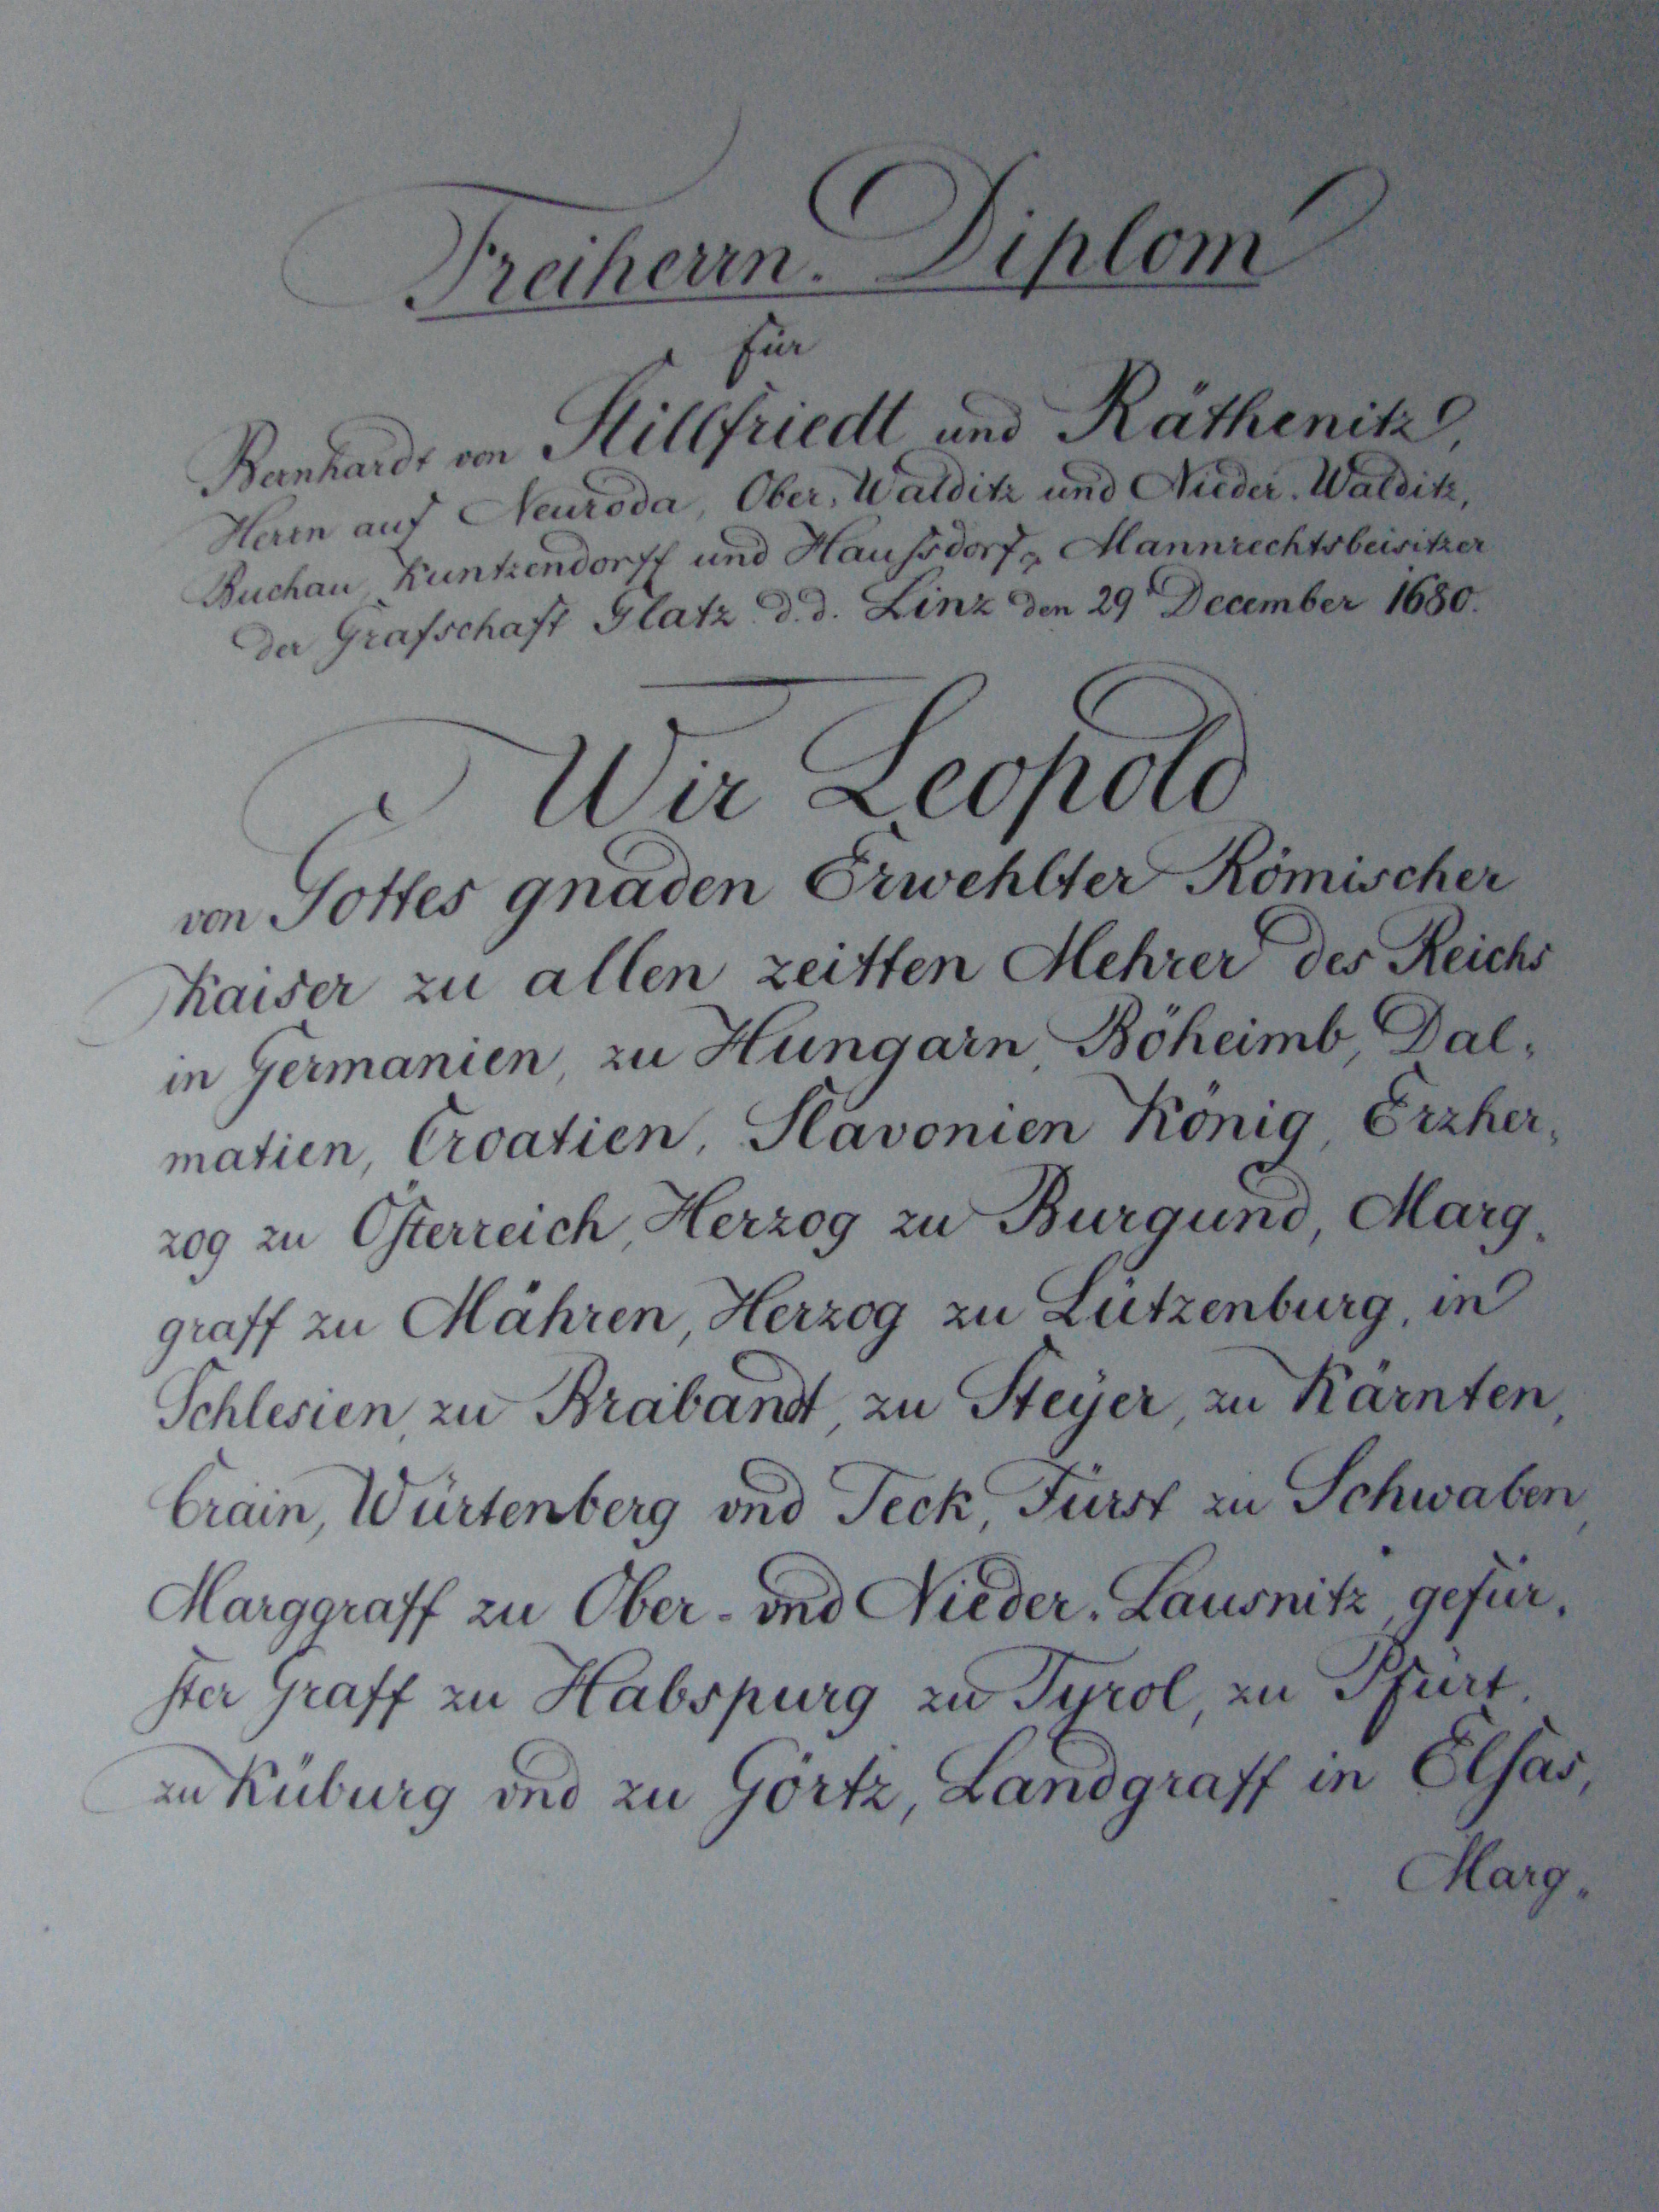 Freiherrn-Diplom
für
Bernhardt von Stillfriedt und Räthenitz,
Herrn auf Neuroda, Ober-Walditz und Nieder-Walditz,
Buchau, Kuntzendorff und Haussdorf, Mannrechtsbeisitzer
der Grafschaft Glatz d. d. Linz den 29 December 1680.
Wir Leopold
von Gottes gnaden Erwehlter Römischer
Kaiser zu allen zeitten Mehrer des Reichs
in Germanien, zu Hungarn, Böheimb, Dal-
matien, Croatien, Slavonien König, Erzher-
zog zu Österreich, Herzog zu Burgund, Marg-
graff zu Mähren, Herzog zu Lützenburg, in
Schlesien, zu Brabandt, zu Steÿer, zu Kärnten,
Crain, Würtenberg vnd Teck, Fürst zu Schwaben,
Marggraff zu Ober- vnd Nieder-Lausnitz, gefür-
ster Graff zu Habspurg zu Tyrol, zu Pfürt,
zu Küburg vnd zu Görtz, Landgraff in Elsas,
Marg-